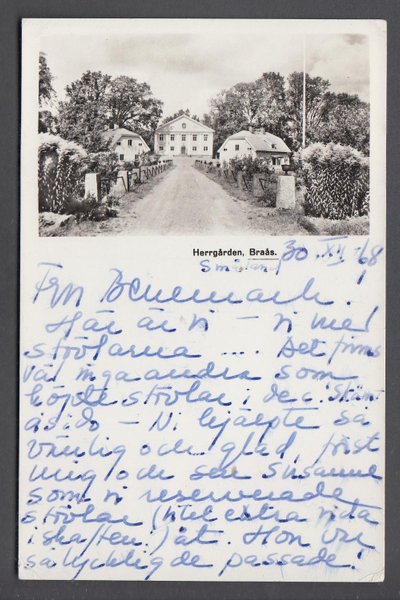 Herrgården, Braås.
Småland 30 XII -68
Fru Denemark!
Här är vi – vi med
stövlarna .... Det finns
väl inga andra som
köpte stövlar i de
– Ni hjälpte så
vänlig och glad, först
mig och sen Susanne
som vi reserverade
stövlar (litet extra vida
i skaften!) åt. Hon blev
så lycklig de passade!